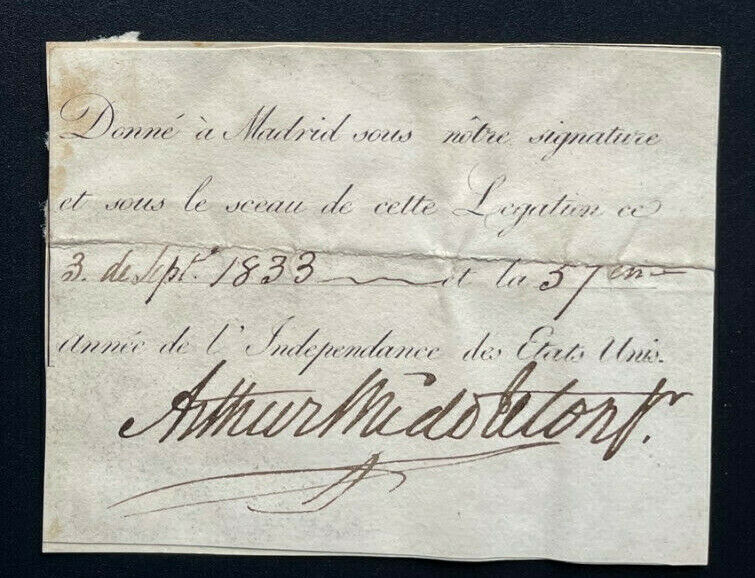 Donné à Madrid sous nôtre signature
et sous le sceau de cette Legation ce
3. de Sept.e 1833 et la 57 eme
année de l'Independance des Etats Unis.
Arthur Middleton Jr.